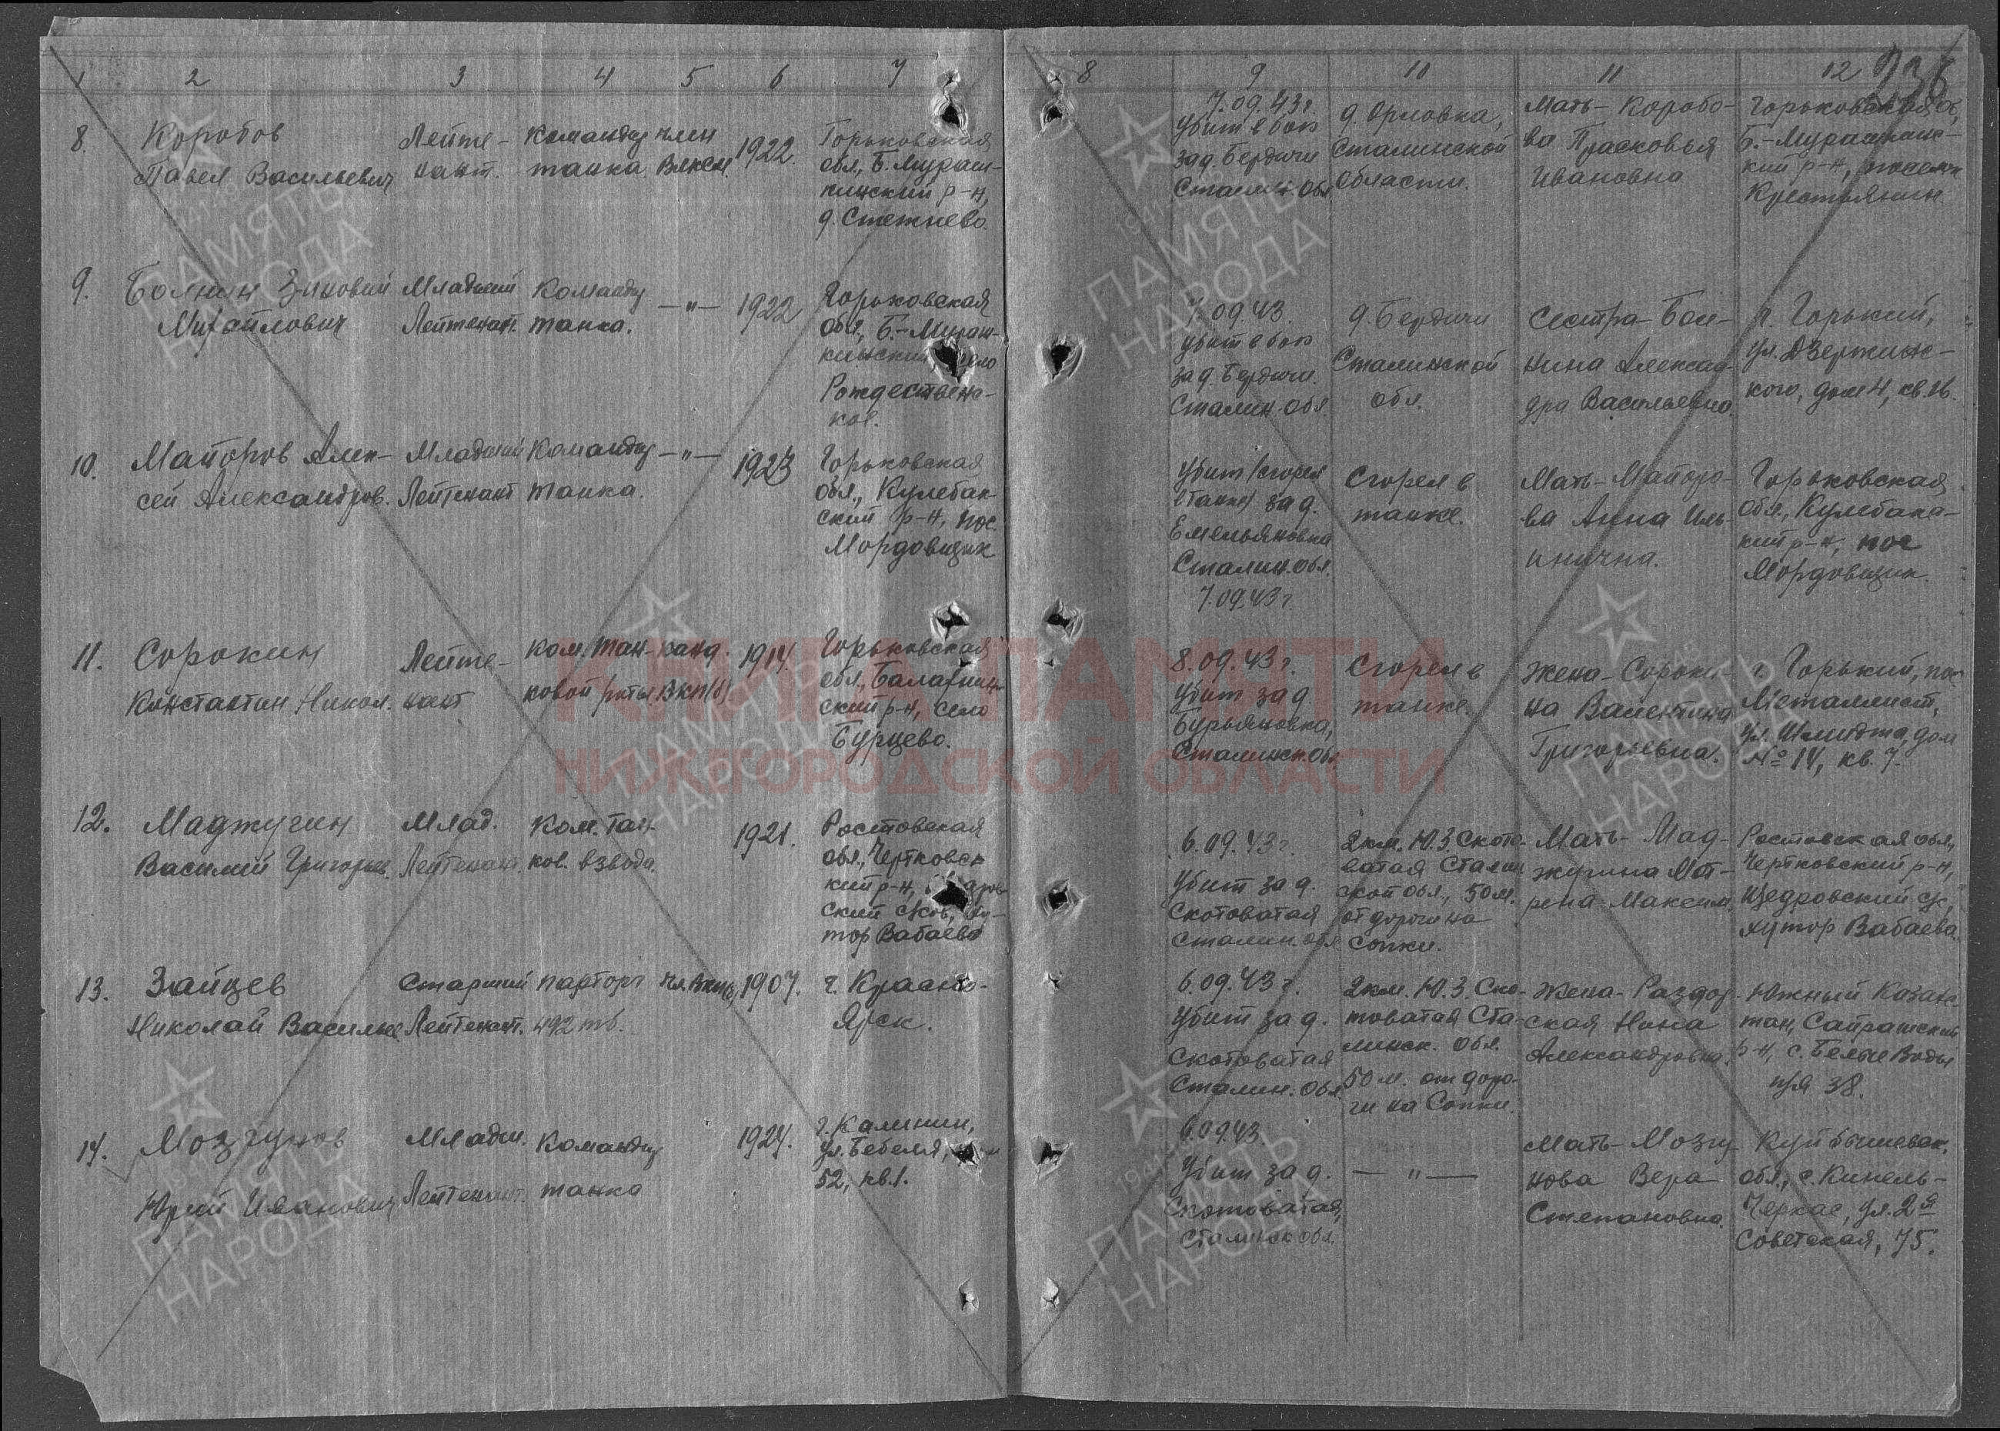 1 2 3 4 5 6 7 8 9 10 11 12
236
8. Коробов Павел Васильевич
Лейте-
нант.
Командир
танка
член
Влксм
1922
Горьковская
обл, Б. Мураш-
кинский р-н,
7.09.43г.
Убит в бою
за д. Бердичи
Сталин. Обл
д. Орловка,
Сталинской
области.
Мать- Коробо-
ва Прасковья
Ивановна
Горьковская об,
Б.-Мурашкин-
кий р-н, поселок
Крестьянин
9. Боинин Зиновий
Михайлович
Младший
Лейтенант.
Командир
танка.
—"—
1922
Горьковская
обл, Б.-Мураш-
кинский село
Рождествен-
кое.
7.09.43.
убит в бою
за д. Бердичи.
Сталин. обл
д. Бердичи
Сталинской
обл.
Сестра- Бои-
нина Алексан-
дра Васильевна
г. Горький,
ул. Дзержинс-
кого, дом 4, кв. 16.
10. Майоров Алек-
сей Александров.
Младший
Лейтенант
Командир
танка.
—"—
1923
Горьковская
обл., Кулебак-
ский р-н, пос
Мордовщик
Убит (сгорел
в танке) за д.
Емельяновка
Сталин. обл.
7.09.43г
Сгорел в
танке.
Мать- Майоро-
ва Анна Иль-
инична.
Горьковская
обл., Кулебака-
кий р-н, пос
Мордовщик.
11. Сорокин
Константин Никол.
Лейте-
нант
ком. тан-
ковой роты
канд.
ВКП(б)
1914.
Горьковская
обл., Балахнин-
ский р-н, село
Бурцево.
8.09.43г.
Убит за д
Бурьяновка,
Сталинск. обл
Сгорел в
танке.
Жена- Сороки-
на Валентина
Григорьевна.
г. Горький, пос
Металлист,
ул. Шмидта, дом
№ 14, кв. 7.
12. Маджугин
Василий Григорьев.
Млад.
Лейтенант
Ком. тан-
ков. взвода.
1921.
Ростовская
обл., Чертковск
кий р-н,
ский с/сов, ху-
тор Бабаево
6.09.43г.
Убит за д.
Скотоватая
Сталин. обл
2 км. Ю.З Ското-
ватая Сталин
ской обл, 50 м.
от дороги на
сопки.
Мать- Мад-
жугина Мот-
рена Максим.
Ростовская обл,
Чертковский р-н,
Щедровский с/с,
хутор Бабаева.
13. Зайцев
Николай Василье
Старший
Лейтенант.
парторг
492 тб.
1907.
г. Красно-
Ярск.
6.09.43г.
Убит за д.
Скотоватая
Сталин. обл
2 км. Ю.З. Ско-
товатая Ста-
линск. обл.
50 м. от доро-
ги на Сопки.
Жена- Раздор-
ская Нина
Александровна.
Южный Казахс
тан, Сайрамский
р-н, с. Белые Воды
п/я 38.
14. Мозгунов
Юрий Иванович
Младш.
Лейтенант.
Командир
танка
1924.
г. Калинин,
ул. Бебеля,
52, кв. 1.
6.09.43
Убит за д.
Скотоватая,
Сталинск обл.
—"—
Мать- Мозгу
нова Вера
Степановна.
Куйбышевск.
обл., с. Кинель-
Черкас, ул. 2я
Советская, 75.
КНИГА ПАМЯТИ
НИЖГОРОДСКОЙ ОБЛАСТИ
ПАМЯТЬ
НАРОДА
ПАМЯТЬ
НАРОДА
ПАМЯТЬ
НАРОДА
ПАМЯТЬ
НАРОДА
ПАМЯТЬ
НАРОДА
ПАМЯТЬ
НАРОДА